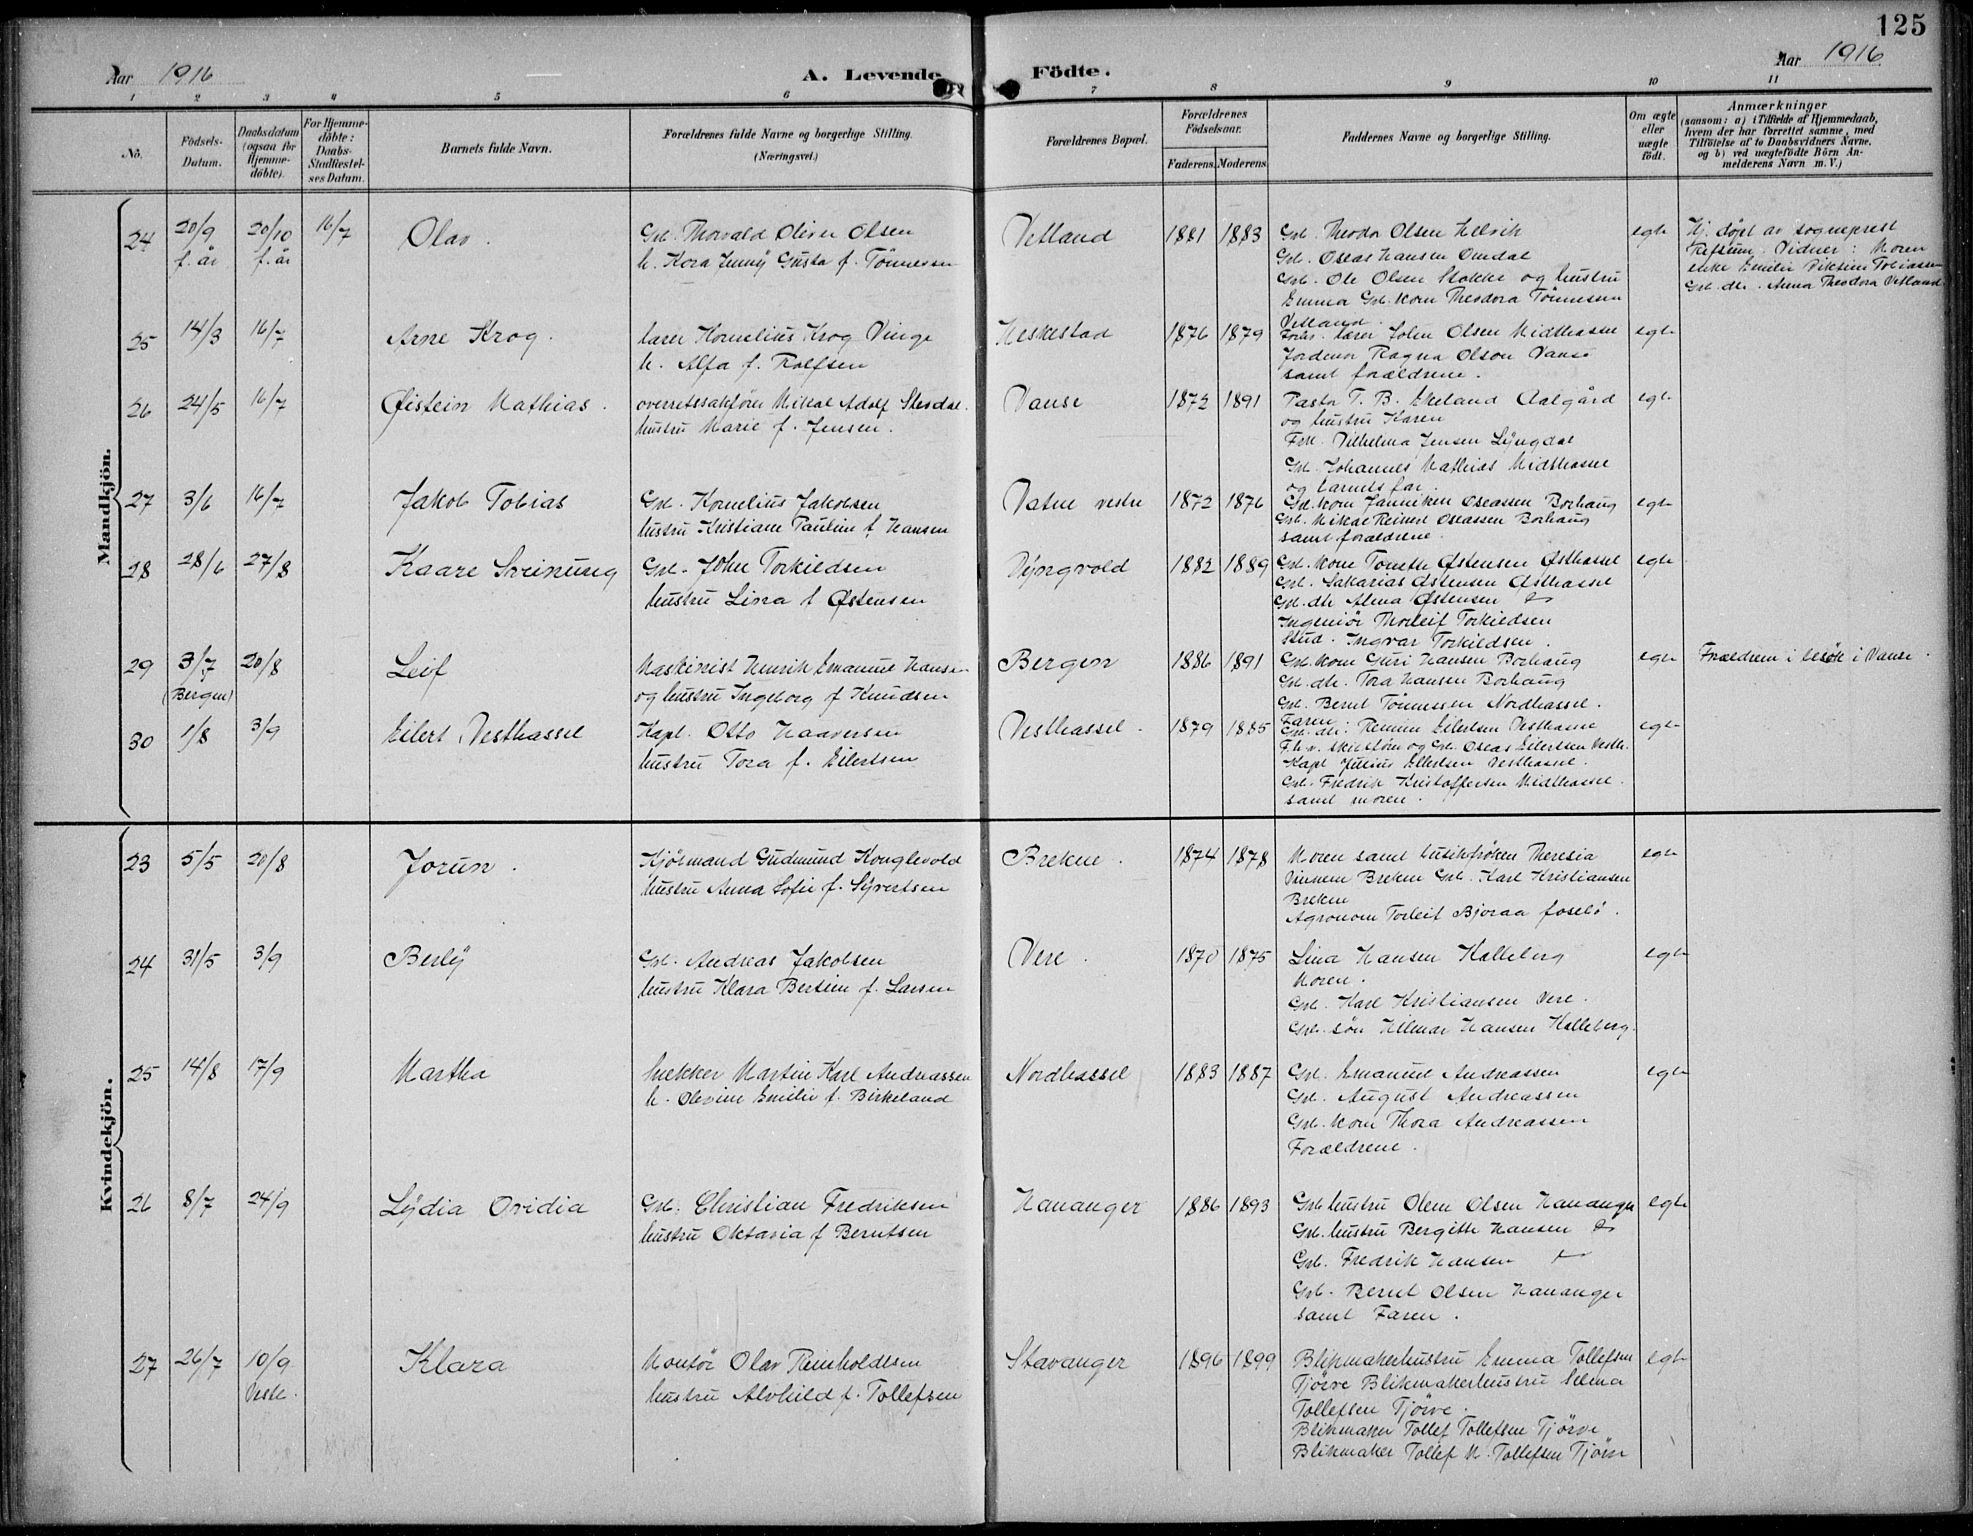 125
Aar 1916
A. Levende Födte.
Aar 1916
1 2 3 4 5 6 7 8 9 10 11
No.
Födsels-
Datum.
Daabsdatum
(ogsaa for
Hjemme-
döbte).
For Hjemme-
döbte:
Daabs-
Stadfæstel-
ses Datum.
Barnets fulde Navn.
Forældrenes fulde Navne og borgerlige Stilling.
(Næringsvei.)
Forældrenes Bopæl.
Forældrenes
Födselsaar.
Faderens. Moderens.
Faddernes Navne og borgerlige Stilling.
Om ægte
eller
uægte
födt.
Anmærkninger
(saasom: a) i Tilfælde af Hjemmedaab,
hvem der har forrettet samme, med
Tilföielse af to Daabsvidners Navne.
og b) ved uægtefödte Börn An-
melderens Navn m. V.)
Mandkjön.
24 20/9 20/10 16/7 Olav.
f. år f. år
Gbr. Thorvald Oliver Olsen
h. Kora Jenny Gusta f. Tönnessen
Vetland 1881 1883
Gbr. Theodor Olsen Helvik
Gbr. Oseas Hansen Omdal
Gbr. Ole Olsen Stokke og hustru
Emma Gbr. kone Theodora Tönnesen
Vetland.
egte
Hj. døpt av sogneprest
Refsum. Vidner: Moren
enke Emilie Tobiassen
Gbr. dtr. Anna Theodora Vetland
25 14/3 16/7 Arne Krog.
lærer Kornelius Krog Vinge
h. Alfa f. Rolfsen
Heskestad 1876 1879
Forhv. lærer John Olsen Midthassel
Jordemor Ragna Olsen Vanse
samt forældrene.
egte
26 24/5 16/7 Øistein Mathias.
overretssakfører Mikal Adolf Stordal.
hustru Marie f. Jensen.
Vanse 1872 1891
Pastor T. B. Ekeland Aalgård
og hustru Karen
Frk. Vilhelma Jensen Lyngdal
Gbr. Johannes Mathias Midthassel
og barnets far.
egte
27 3/6 16/7 Jakob Tobias
Gbr. Kornelius Jakobsen
hustru Kristiane Pauline f. Hansen
Vatne vestre 1872 1876
Gbr. kone Janniken Oseassen Borhaug
Gbr. Mikal Reinert Oseassen Borhaug
samt forældrene.
egte
28 28/6 27/8 Kaare Sveinung
Gbr. John Torkildsen
hustru Lina f Østensen
Dyngvold 1882 1889
Gbr. kone Tomette Østensen Østhassel
Gbr. Sakarias Østensen Østhassel
Gbr. dtr Alma Østensen
Ingeniør Thorleif Torkildsen
Stud. Ingvar Torkildsen.
egte
29 3/7 20/8 Leif
(Bergen)
Maskinist Henrik Emanuel Hansen
og hustru Ingeborg f Knudsen
Bergen 1886 1891
Gbr. kone Guri Hansen Borhaug
Gbr. dtr. Tora Hansen Borhaug
Gbr. Bernt Tönnessen Nordhassel.
Faren
egte
Forældrene i besøk i Vanse.
30 1/8 3/9 Eilert Vesthassel
Kapt. Otto Haaversen
hustru Tora f. Eilertsen
Vesthassel. 1879 1885
Gbr. dtr: Eilertsen Vesthassel
F.h.v. skibsfører og Gbr. Oseas Eilertsen Vesth.
Kapt Julius Eilertsen Vesthassel.
Gbr. Fredrik Kristoffersen Midthassel.
samt moren.
egte
Kvindekjön.
23 5/5 20/8 Jorun.
Kjøbmand Gudmund Konglevold
hustru Anna Sofie f. Syvertsen
Brekne. 1874 1878
Moren samt butikfröken Theresia
Vinnem Brekne Gbr. Karl Kristiansen
Brekne
Agronom Torleif Bjoraa
egte
24 31/5 3/9 Berly
Gbr. Andreas Jakobsen
hustru Klara Bertine f. Larsen
Vere. 1870 1875
Lina Hansen Kalleberg
Moren.
Gbr. Karl Kristiansen Vere.
Gbr. søn Hilmar Hansen Kalleberg.
egte
25 14/8 17/9 Martha
Snekker Martin Karl Andreassen
h. Olevine Emilie f. Birkeland
Nordhassel 1883 1887
Gbr. Emanuel Andreassen
Gbr. August Andreassen
Gbr. kone Thora Andreassen
Forældrene.
egte
26 8/7 24/9 Lydia Ovidia
Gbr. Christian Fredriksen
hustru Oktavia f Berntsen
Hananger 1886 1893
Gbr hustru Olene Olsen Hananger
Gbr. hustru Bergitte Hansen
Gbr. Fredrik Hansen
Gbr. Bernt Olsen Hananger
samt Faren.
egte
27 26/7 10/9 Klara
Montör Olav Reinholdtsen
hustru Alvhild f. Tollefsen
Stavanger 1896 1899
Blikmakerhustru Emma Tollefsen
Tjörve Blikmakerhustru Selma
Tollefsen Tjörve.
Blikmaker Tollef Tollefsen Tjörve
Blikmaker Tollef M. Tollefsen Tjörve
egte